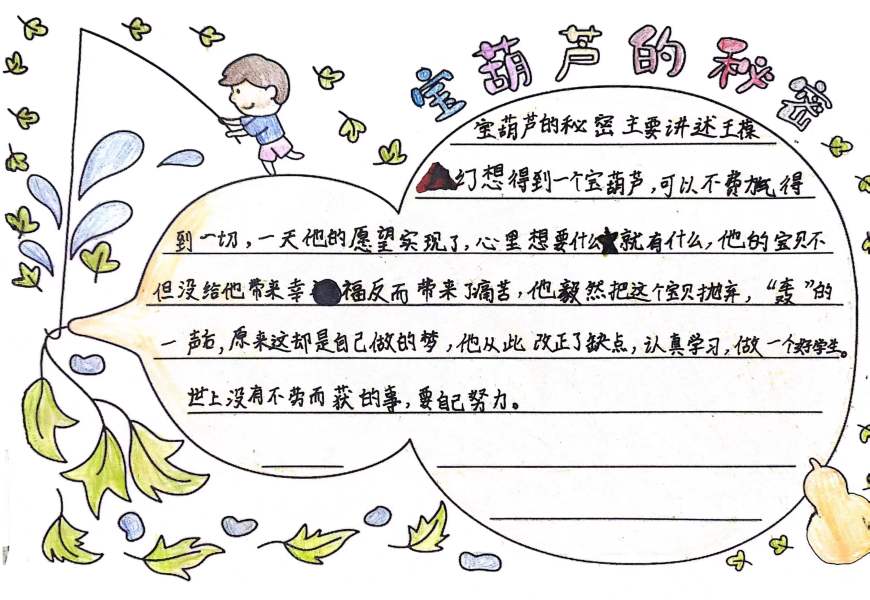 宝葫芦的秘密
宝葫芦的秘密主要讲述王葆
幻想得到一个宝葫芦，可以不费力气得
到一切，一天他的愿望实现了，心里想要什么就有什么，他的宝贝不
但没给他带来幸福反而带来了痛苦，他毅然把这个宝贝抛弃，“轰”的
一声右，原来这却是自己做的梦，他从此改正了缺点，认真学习，做一个好学生。
世上没有不劳而获的事，要自己努力。